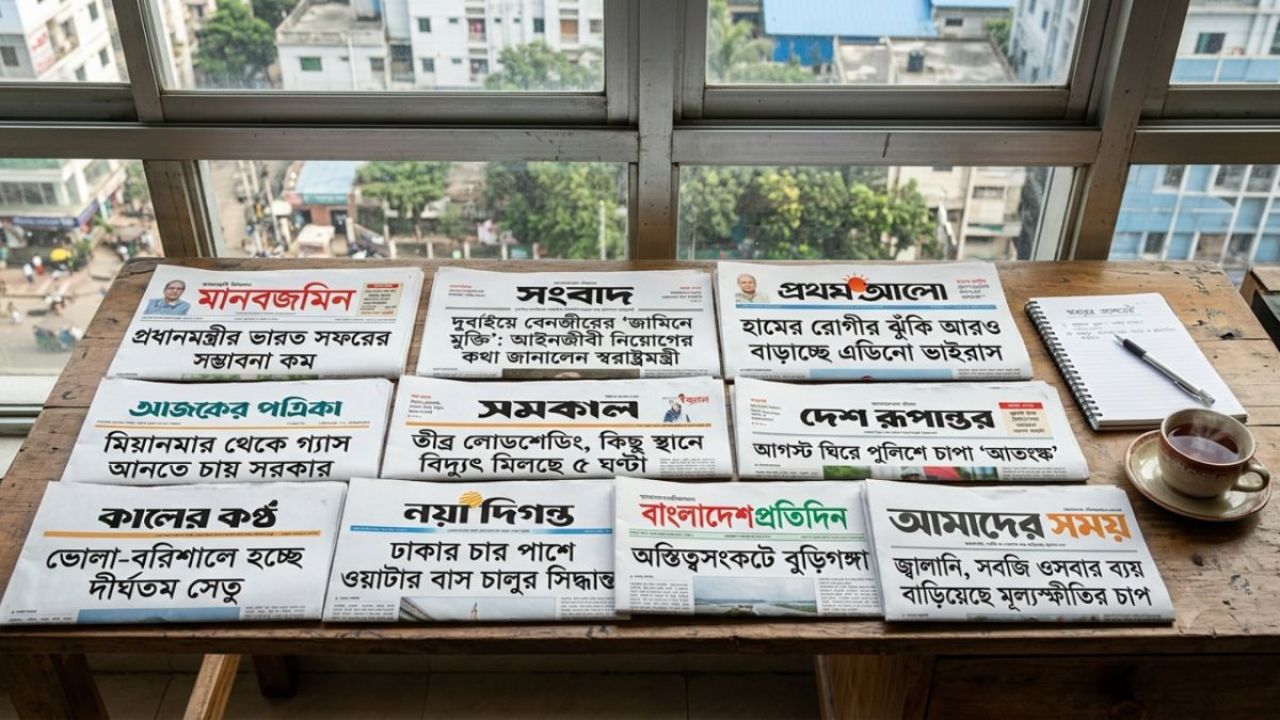 মানবজমিন
প্রধানমন্ত্রীর ভারত সফরের
সম্ভাবনা কম
সংবাদ
দুবাইয়ে বেনজীরের ‘জামিনে
মুক্তি’: আইনজীবী নিয়োগের
কথা জানালেন স্বরাষ্ট্রমন্ত্রী
প্রথম আলো
হামের রোগীর ঝুঁকি আরও
বাড়াচ্ছে এডিনো ভাইরাস
আজকের পত্রিকা
মিয়ানমার থেকে গ্যাস
আনতে চায় সরকার
সমকাল
তীব্র লোডশেডিং, কিছু স্থানে
বিদ্যুৎ মিলছে ৫ ঘণ্টা
দেশ রূপান্তর
আগস্ট ঘিরে পুলিশে চাপা ‘আতংক’
কালের কণ্ঠ
ভোলা-বরিশালে হচ্ছে
দীর্ঘতম সেতু
নয়া দিগন্ত
ঢাকার চার পাশে
ওয়াটার বাস চালুর সিদ্ধান্ত
বাংলাদেশ প্রতিদিন
অস্তিত্বসংকটে বুড়িগঙ্গা
আমাদের সময়
জ্বালানি, সবজি ওসবার ব্যয়
বাড়িয়েছে মূল্যস্ফীতির চাপ